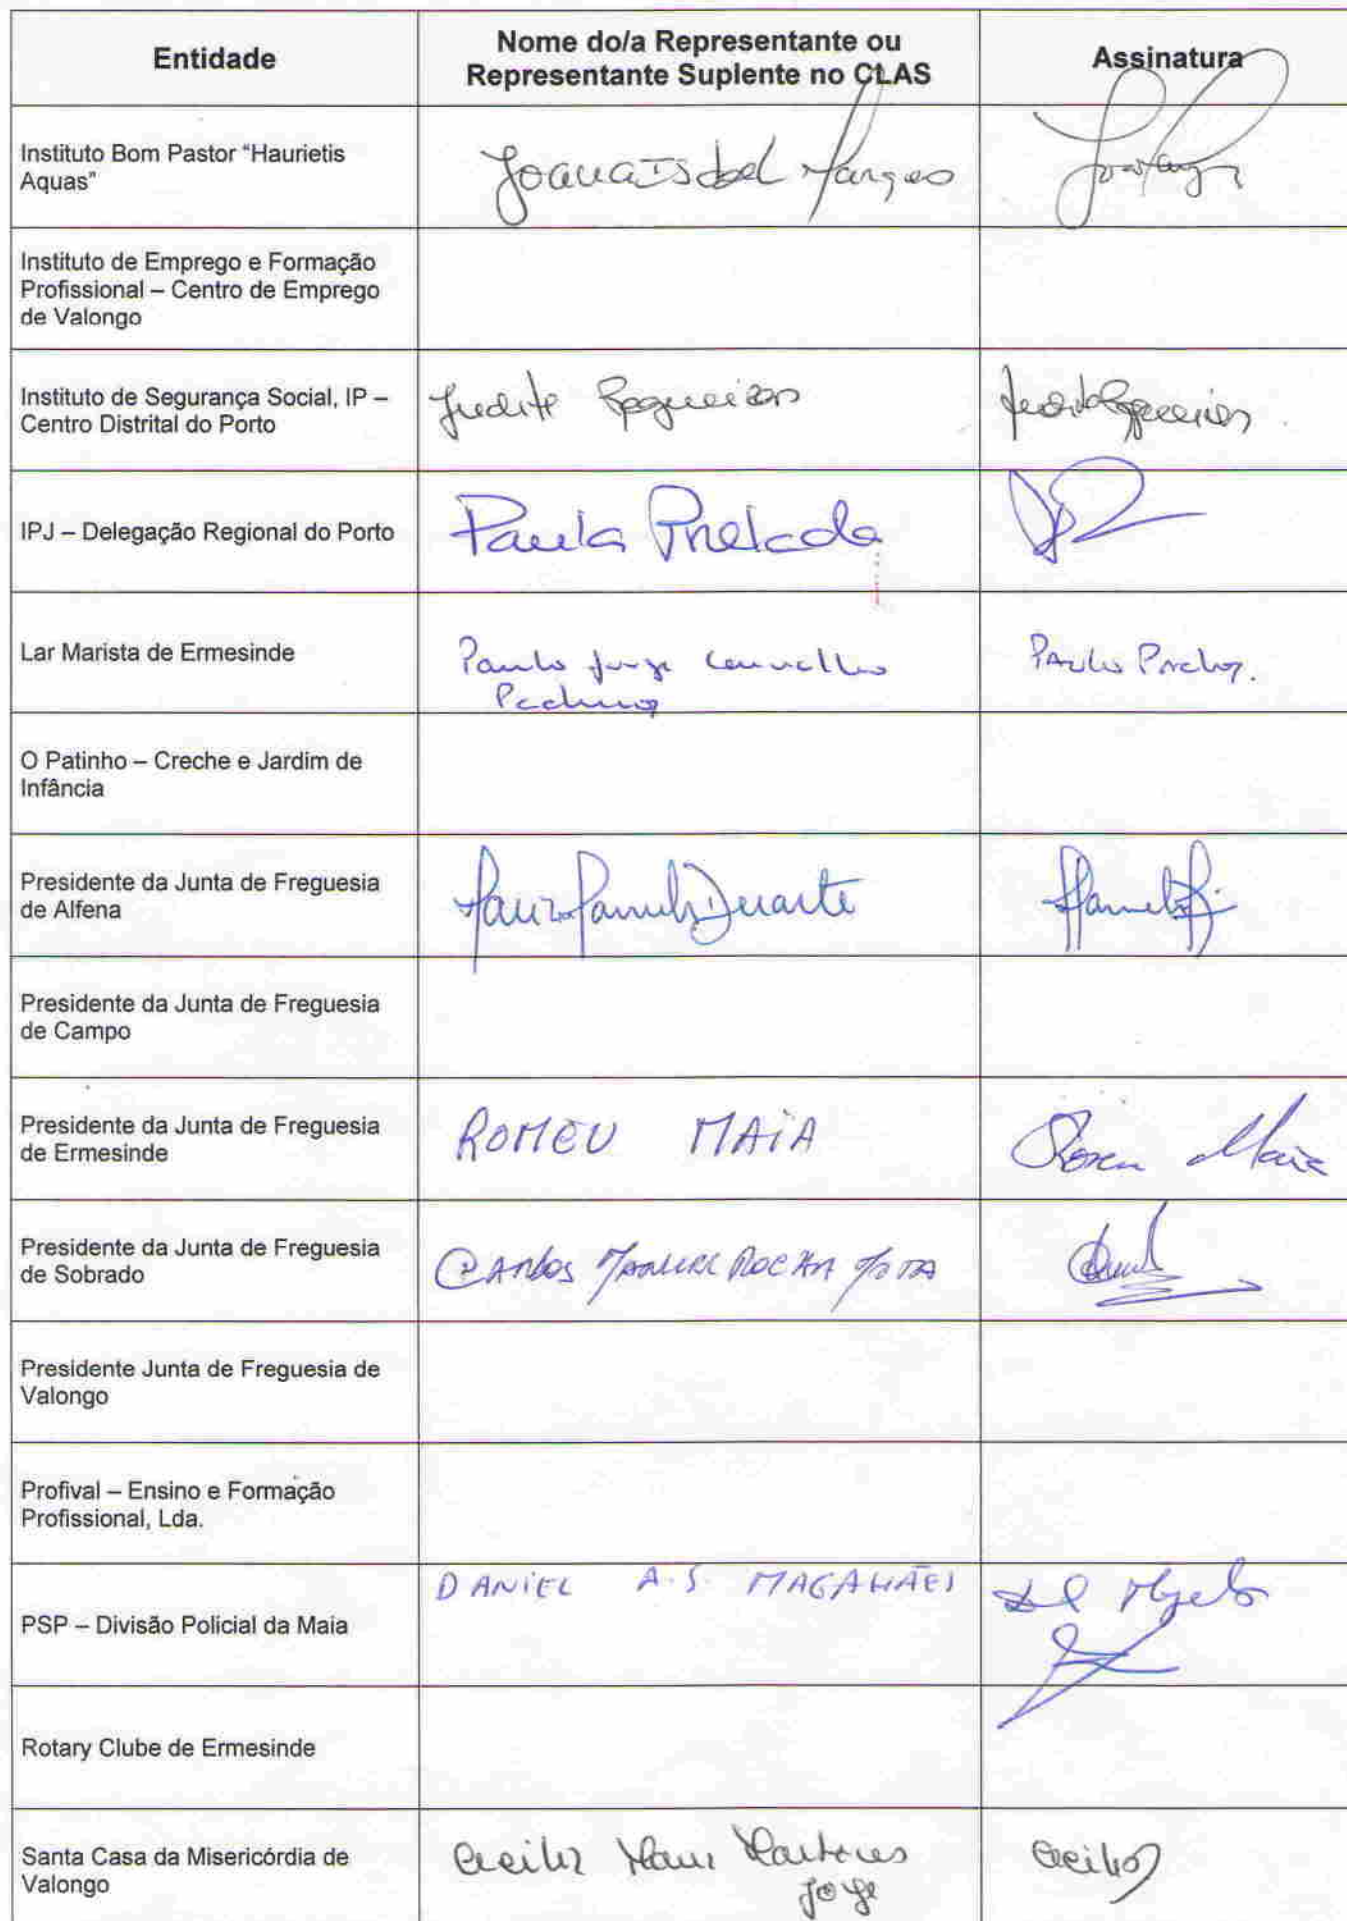 Entidade
Nome do/a Representante ou
Representante Suplente no CLAS
Assinatura
Instituto Bom Pastor “Haurietis
Aquas”
Joana Isabel Marques
Instituto de Emprego e Formação
Profissional – Centro de Emprego
de Valongo
Instituto de Segurança Social, IP –
Centro Distrital do Porto
Judite
IPJ – Delegação Regional do Porto
Paula Prelada
Lar Marista de Ermesinde
Paulo Jorge Carvalho
Paulo
O Patinho – Creche e Jardim de
Infância
Presidente da Junta de Freguesia
de Alfena
Duarte
Presidente da Junta de Freguesia
de Campo
Presidente da Junta de Freguesia
de Ermesinde
ROMEU MAIA
Maia
Presidente da Junta de Freguesia
de Sobrado
Carlos Manuel Rocha Mota
Presidente Junta de Freguesia de
Valongo
Profival – Ensino e Formação
Profissional, Lda.
PSP – Divisão Policial da Maia
DANIEL A.S. MAGALHÃES
Rotary Clube de Ermesinde
Santa Casa da Misericórdia de
Valongo
Jorge